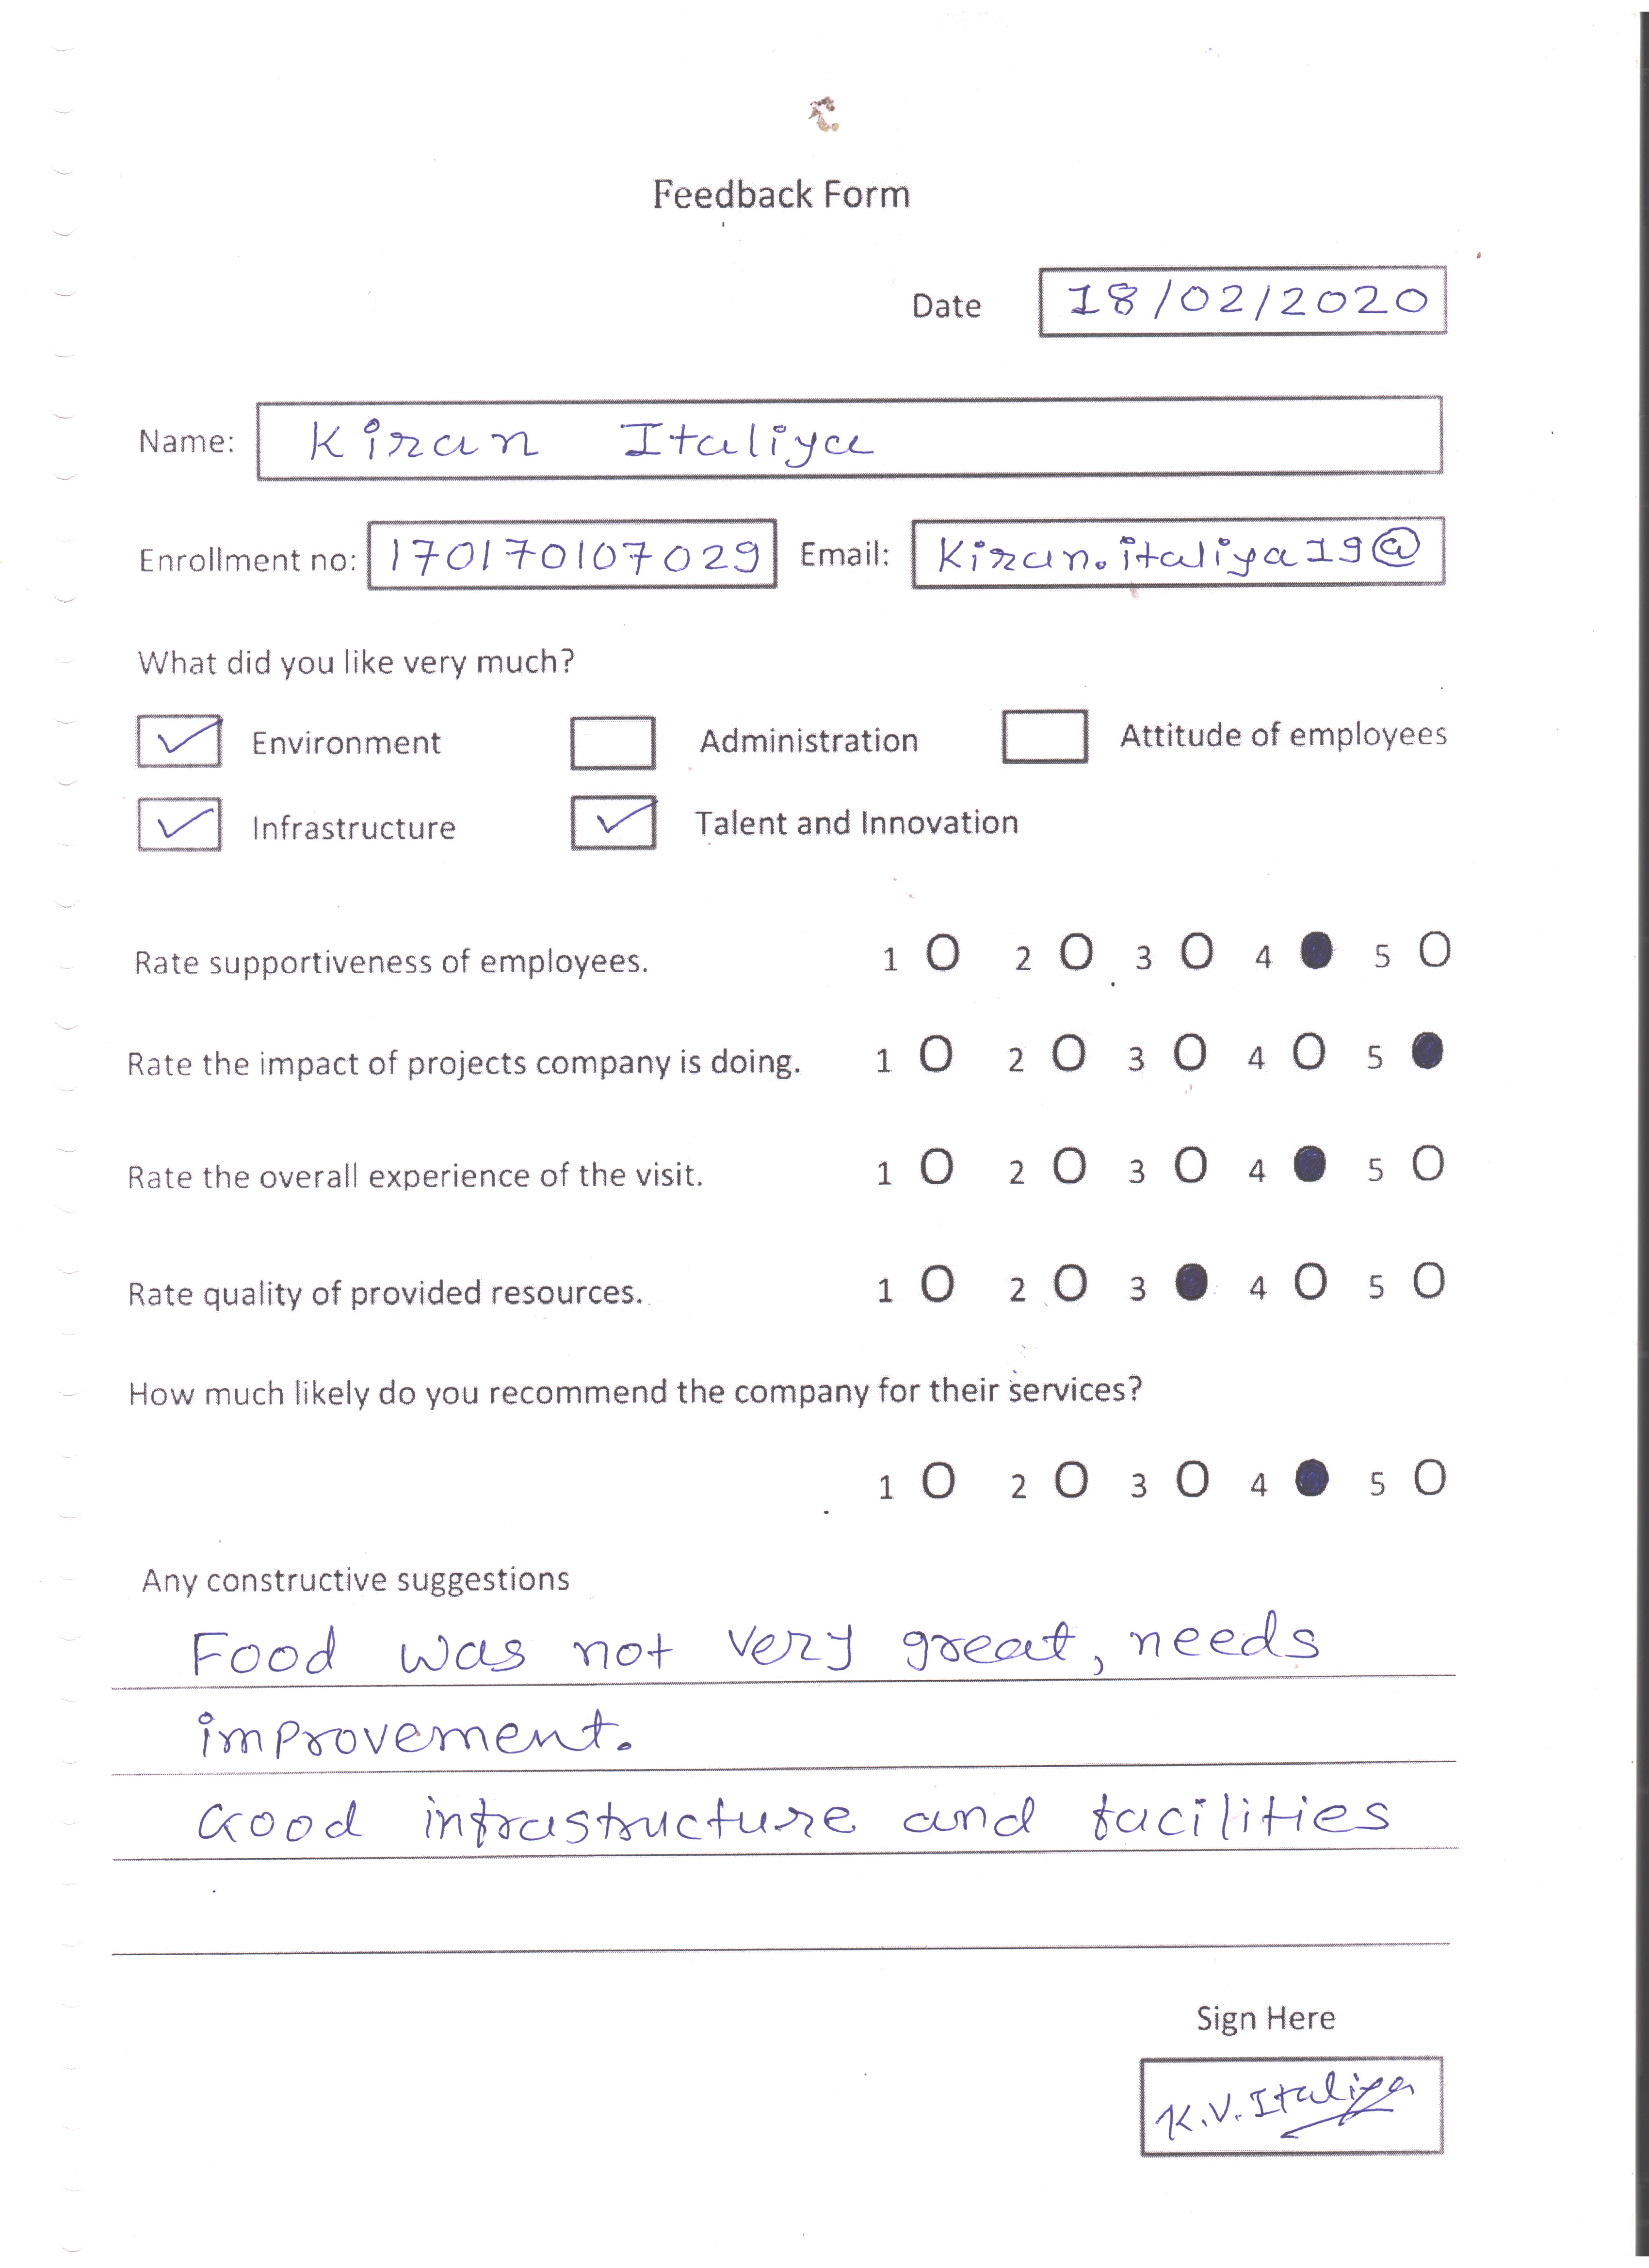 Feedback Form
Date 18/02/2020
Name: Kiran Italiya
Enrollment no: 170170107029 Email: Kiran.italiya19@
What did you like very much?
Environment Administration Attitude of employees
Infrastructure Talent and Innovation
Rate supportiveness of employees. 1 2 3 4 5
Rate the impact of projects company is doing. 1 2 3 4 5
Rate the overall experience of the visit. 1 2 3 4 5
Rate quality of provided resources. 1 2 3 4 5
How much likely do you recommend the company for their services?
1 2 3 4 5
Any constructive suggestions
Food was not very great, needs
improvement.
Good infrastructure and facilities
Sign Here
K.V. Italiya